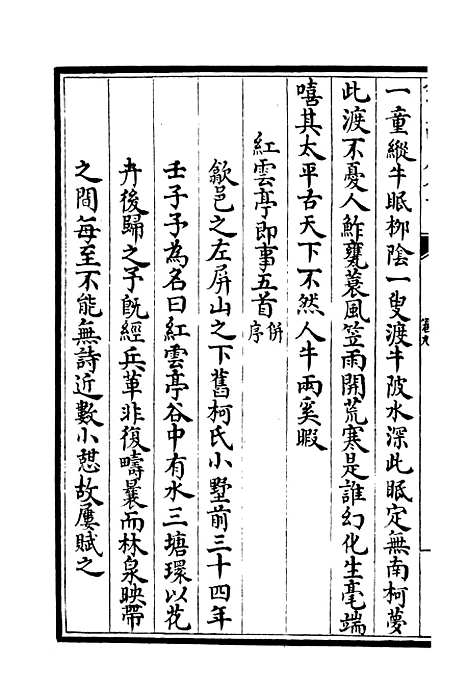 一童縱牛眠柳陰一叟渡牛陂水深此眠定無南柯夢
此渡不憂人鮓甕蓑風笠雨開荒寒是誰幻化生毫端
嘻其太平古天下不然人牛兩奚暇
紅雲亭即事五首併序
歙邑之左屏山之下舊柯氏小墅前三十四年
壬子予為名曰紅雲亭谷中有水三塘環以花
卉後歸之予既經兵革非復疇曩而林泉映帶
之間每至不能無詩近數小憩故屢賦之
卷九